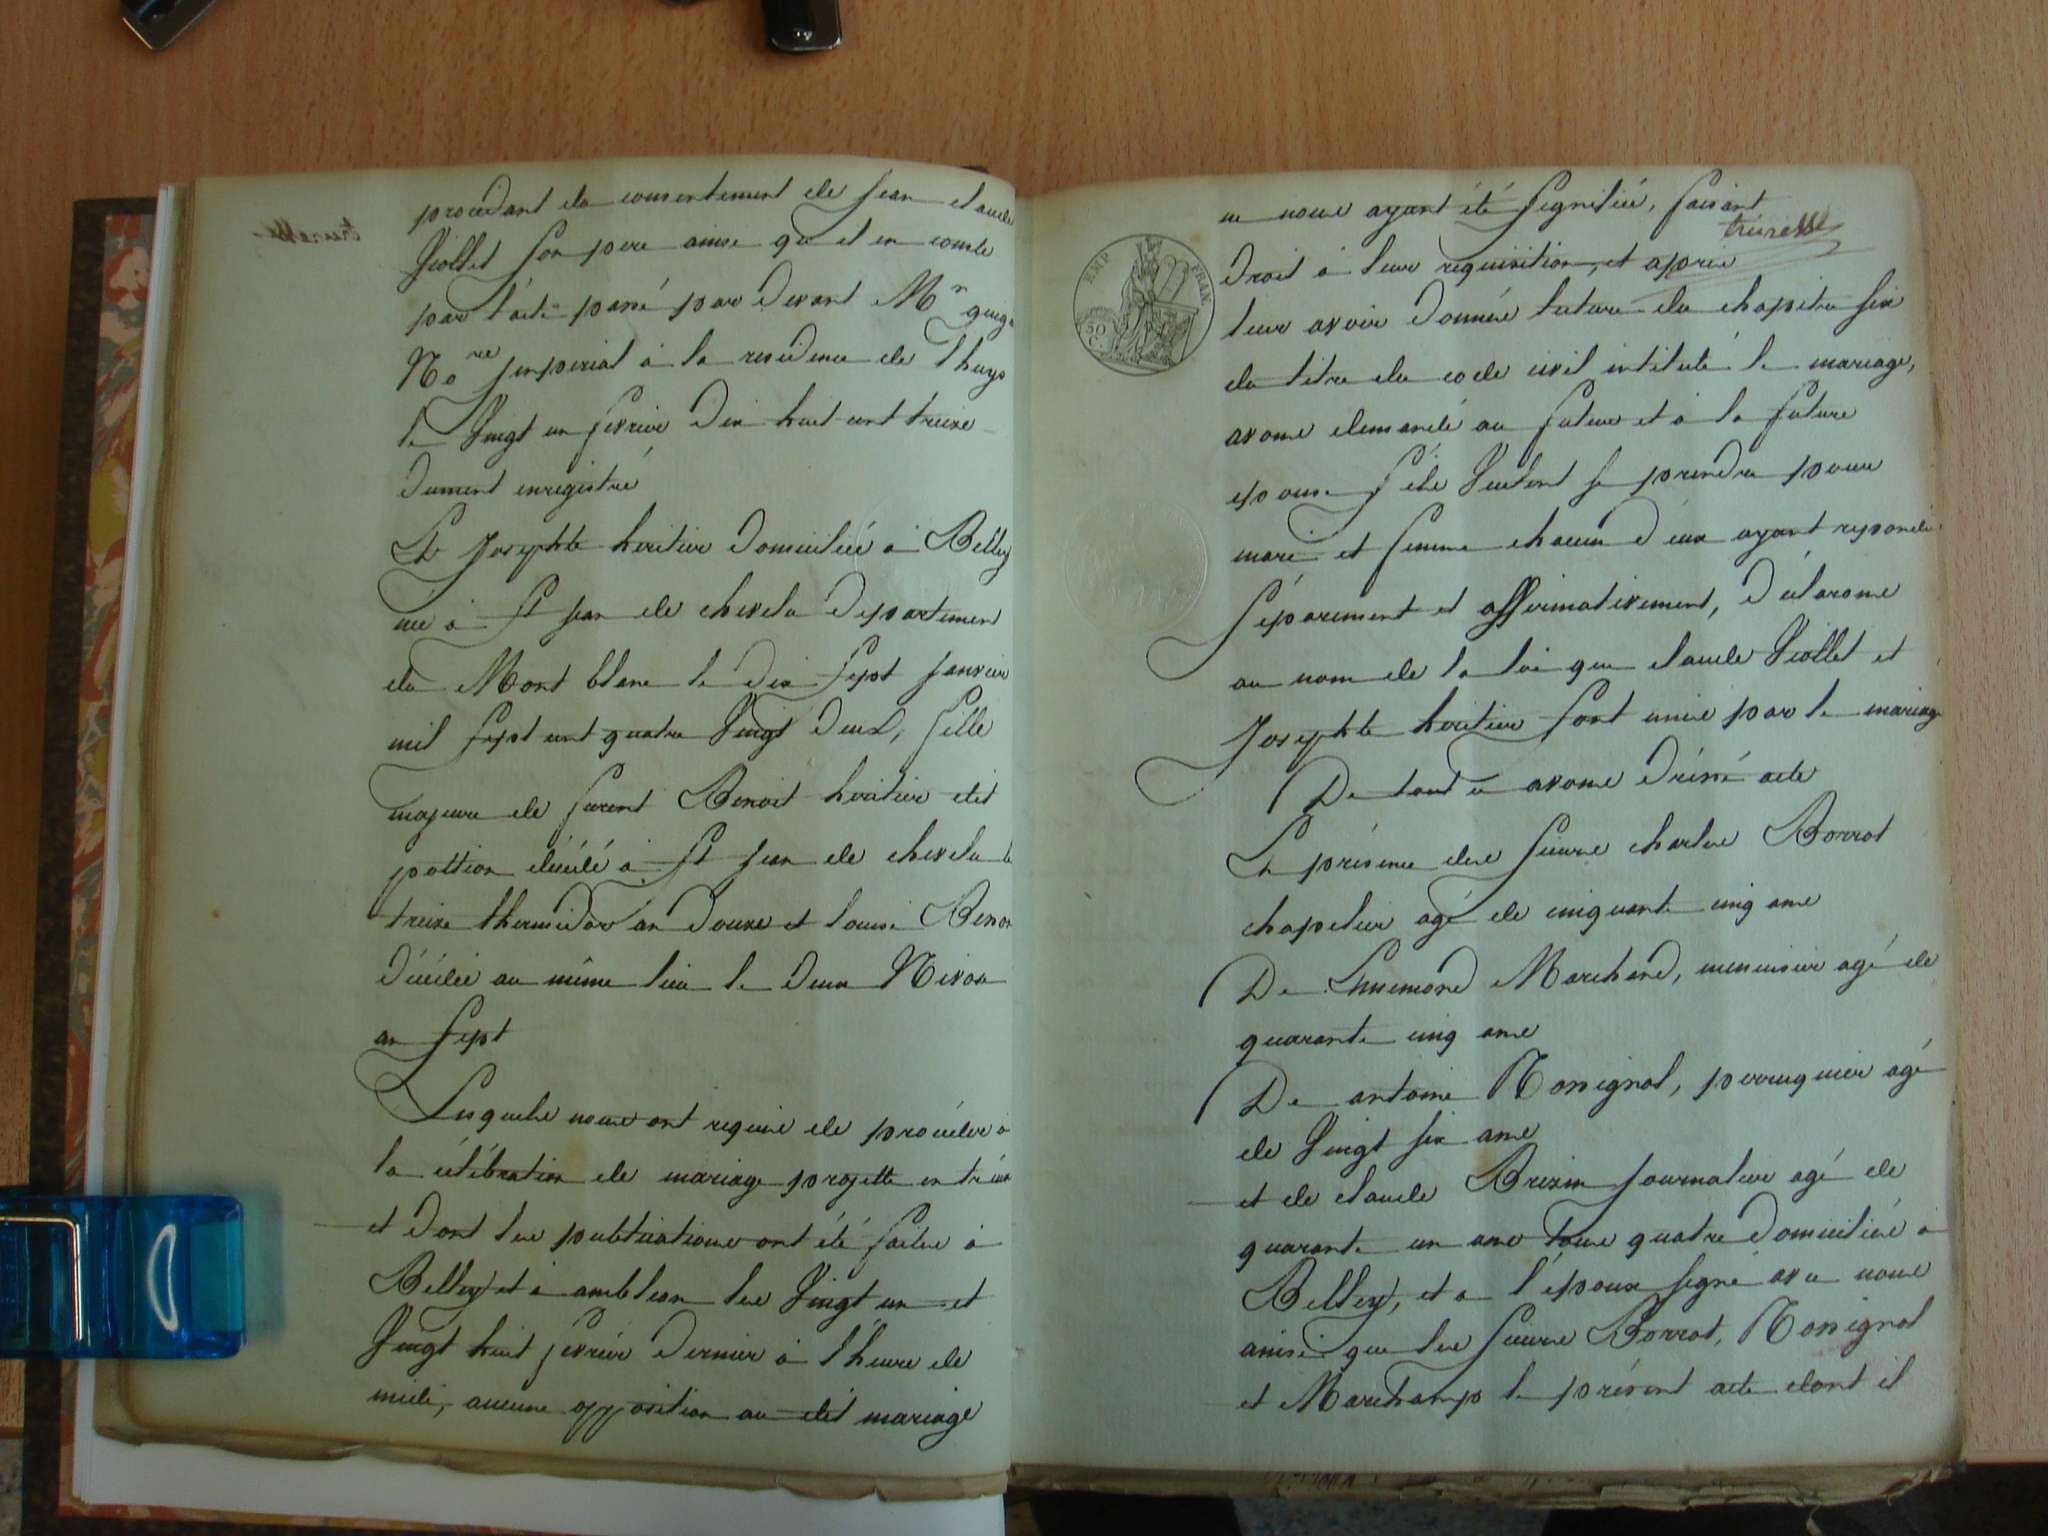 procédant du consentement de Jean claude
Viollet son pere ainsi qu'il en conste
par l'acte passé par devant Mr
No re imperial à la residence de Lhuys
le Vingt un fevrier dix huit cent treize
dument enregistré
Et Josephte heritier domiciliée à Belley
née à St jean de chevelu Departement
du Mont blanc le dix sept janvier
mil sept cent quatre Vingt deux, fille
majeure de furent Benoit heritier dit
pottion décédé à St jean de chevelu le
treize thermidor an douze et louise
décédée au même lieu le deux Nivose
an sept
Lesquels nous ont requis de procéder à
la célébration de mariage projetté entr'eux
et dont les publications ont été faites à
Belley et à ambleon les Vingt un et
Vingt huit fevrier dernier à l'heure de
midi, aucune opposition au dit mariage
EMP FRAN
50 C.
ne nous ayant été signifiée, faisant
droit à leur requisition, et apres
leur avoir donnée lecture du chapitre six
du titre du code civil intitulé le mariage,
avons demandé au futur et à la future
epouse s'ils Veulent se prendre pour
mari et femme chacun d'eux ayant repondu
séparement et affirmativement, déclarons
au nom de la loi que claude Viollet et
Josephte heritier sont unis par le mariage
De tout ce avons dréssé acte
En présence des sieurs charles Borrot
chapelier agé de cinquante cinq ans
De Ennemond Marchand, menuisier agé de
quarante cinq ans
De antoine Rossignol, perruquier agé
de Vingt six ans
et de claude journalier agé de
quarante un ans tous quatre domiciliés à
Belley, et a l'époux signé avec nous
ainsi que les sieurs Borrot, Rossignol
et Marchamp le présent acte dont il